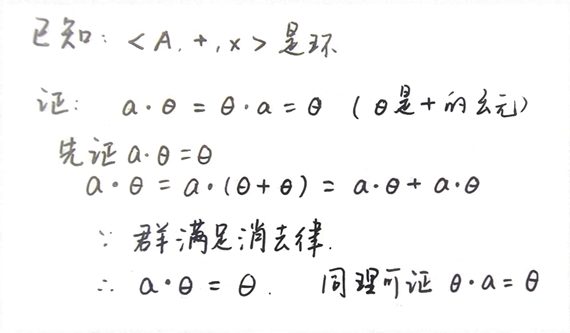 已知: <A, +, ×> 是环
证: a·θ = θ·a = θ (θ是+的幺元)
先证 a·θ = θ
a·θ = a·(θ+θ) = a·θ + a·θ
∵ 群满足消去律.
∴ a·θ = θ. 同理可证 θ·a = θ